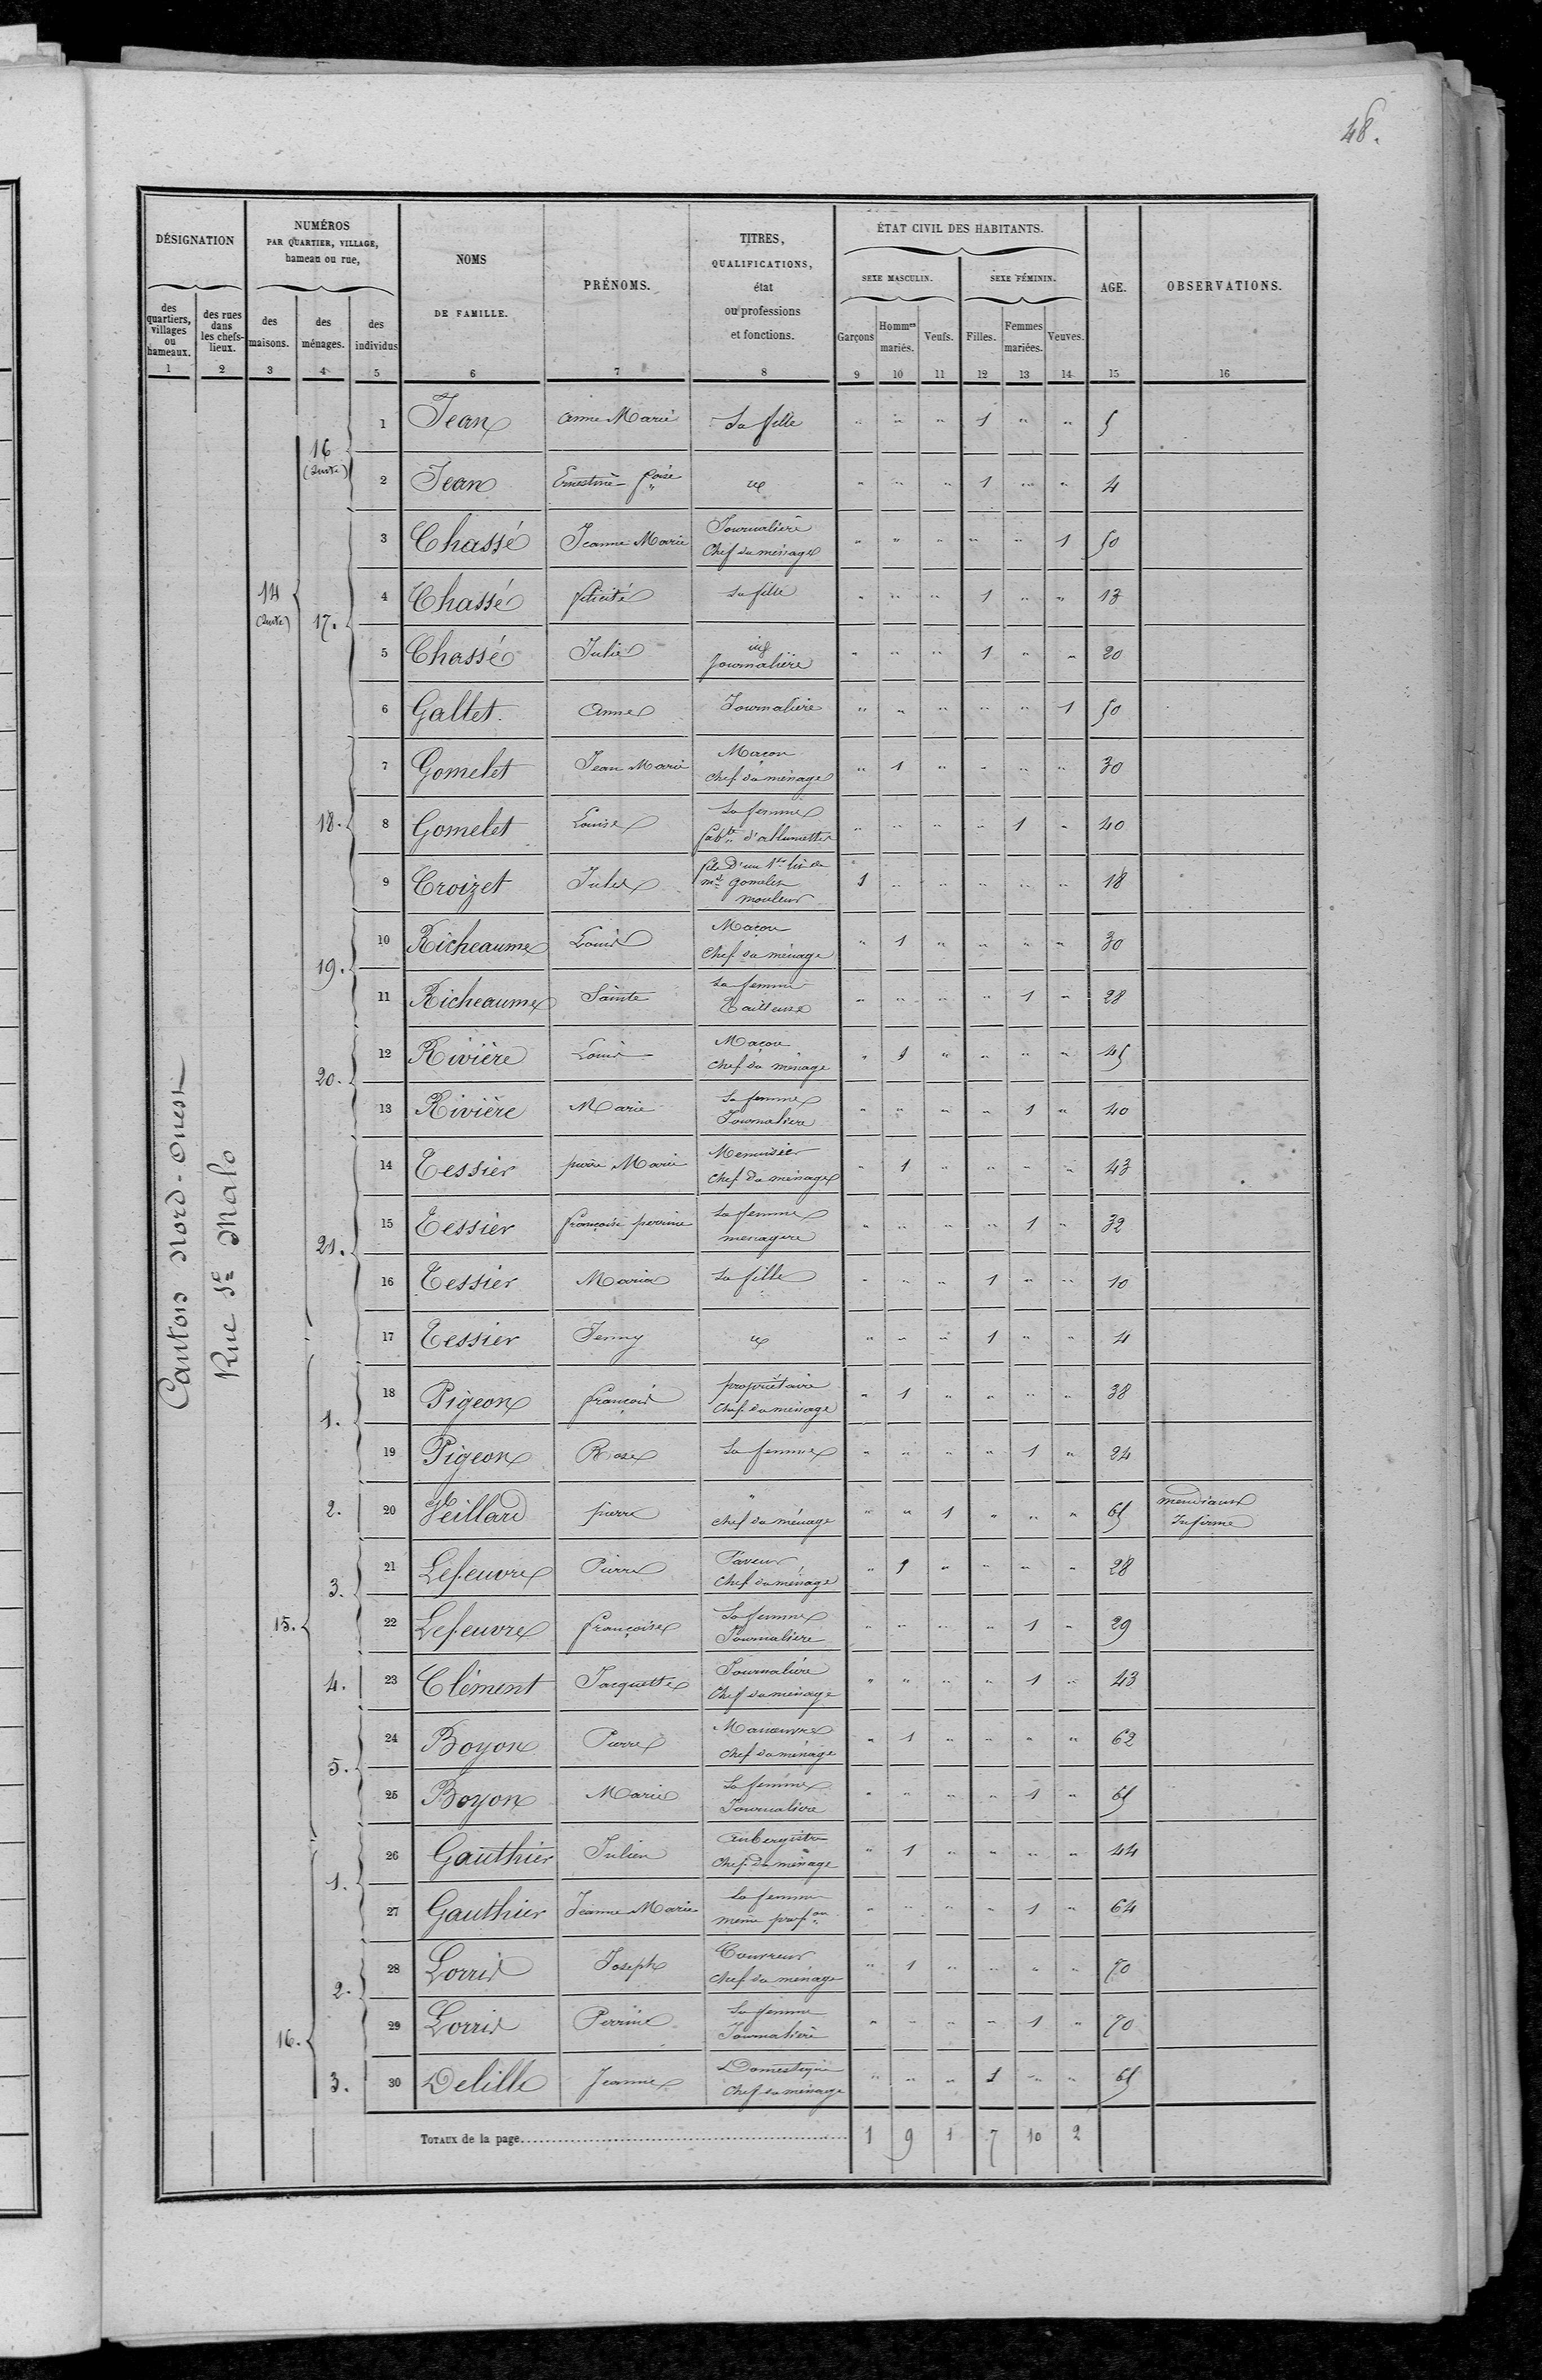 48.
DÉSIGNATION
des quartiers, villages ou hameaux.
des rues dans les chefs-lieux.
NUMÉROS
PAR QUARTIER, VILLAGE,
hameau ou rue,
des maisons.
des ménages.
des individus
NOMS
DE FAMILLE.
PRÉNOMS.
TITRES,
QUALIFICATIONS,
état
ou professions
et fonctions.
ÉTAT CIVIL DES HABITANTS.
SEXE MASCULIN.
SEXE FÉMININ.
Garçons
Hommes mariés.
Veufs.
Filles.
Femmes mariées.
Veuves.
AGE.
OBSERVATIONS.
1 2 3 4 5 6 7 8 9 10 11 12 13 14 15 16
Canton Nord-Ouest
Rue St Malo
14 (Suite)
16 (Suite)
1 Jean Anne Marie Sa fille " " " 1 " " 5
2 Jean Ernestine foise id " " " 1 " " 4
17.
3 Chassé Jeanne Marie Journalière Chef du ménage " " " " " 1 50
4 Chassé félicité Sa fille " " " 1 " " 13
5 Chassé Julie id Journalière " " " 1 " " 20
6 Galtet. Anne Journalière " " " " " 1 50
18.
7 Gomelet Jean Marie Maçon Chef du ménage " 1 " " " " 30
8 Gomelet Louise Sa femme fabte d'allumettes " " " " 1 " 40
9 Croizet Jules fils d'un 1er lit de Gomelet mouleur 1 " " " " " 18
19.
10 Richeaume Louis Maçon Chef du ménage " 1 " " " " 30
11 Richeaume Sainte Sa femme Tailleuse " " " " 1 " 28
20.
12 Rivière Louis Maçon Chef du ménage " 1 " " " " 45
13 Rivière Marie Sa femme Journalière " " " " 1 " 40
21.
14 Tessier pierre Marie Menuisier Chef du ménage " 1 " " " " 43
15 Tessier françoise perrine Sa femme menagere " " " " 1 " 32
16 Tessier Maria Sa fille " " " 1 " " 10
17 Tessier Jenny id " " " 1 " " 4
15.
1.
18 Pigeon françois propriétaire Chef du ménage " 1 " " " " 38
19 Pigeon Rose Sa femme " " " " 1 " 24
2.
20 Veillard pierre " chef du ménage " " 1 " " " 65 mendiant Infirme
3.
21 Lefeuvre Pierre Paveur Chef du ménage " 1 " " " " 28
22 Lefeuvre françoise Sa femme Journalière " " " " 1 " 29
4.
23 Clément Jacquette Journalière Chef du ménage " " " " 1 " 43
5.
24 Boyon Pierre Manœuvre Chef du ménage " 1 " " " " 62
25 Boyon Marie Sa femme Journalière " " " " 1 " 65
16.
1.
26 Gauthier Julien Aubergiste Chef du ménage " 1 " " " " 44
27 Gauthier Jeanne Marie Sa femme même profon " " " " 1 " 64
2.
28 Lorrid Joseph Couvreur Chef du ménage " 1 " " " " 70
29 Lorrid Perrine Sa femme Journalière " " " " 1 " 70
3.
30 Delille Jeanne Domestique Chef du ménage " " " 1 " " 65
TOTAUX de la page 1 9 1 7 10 2